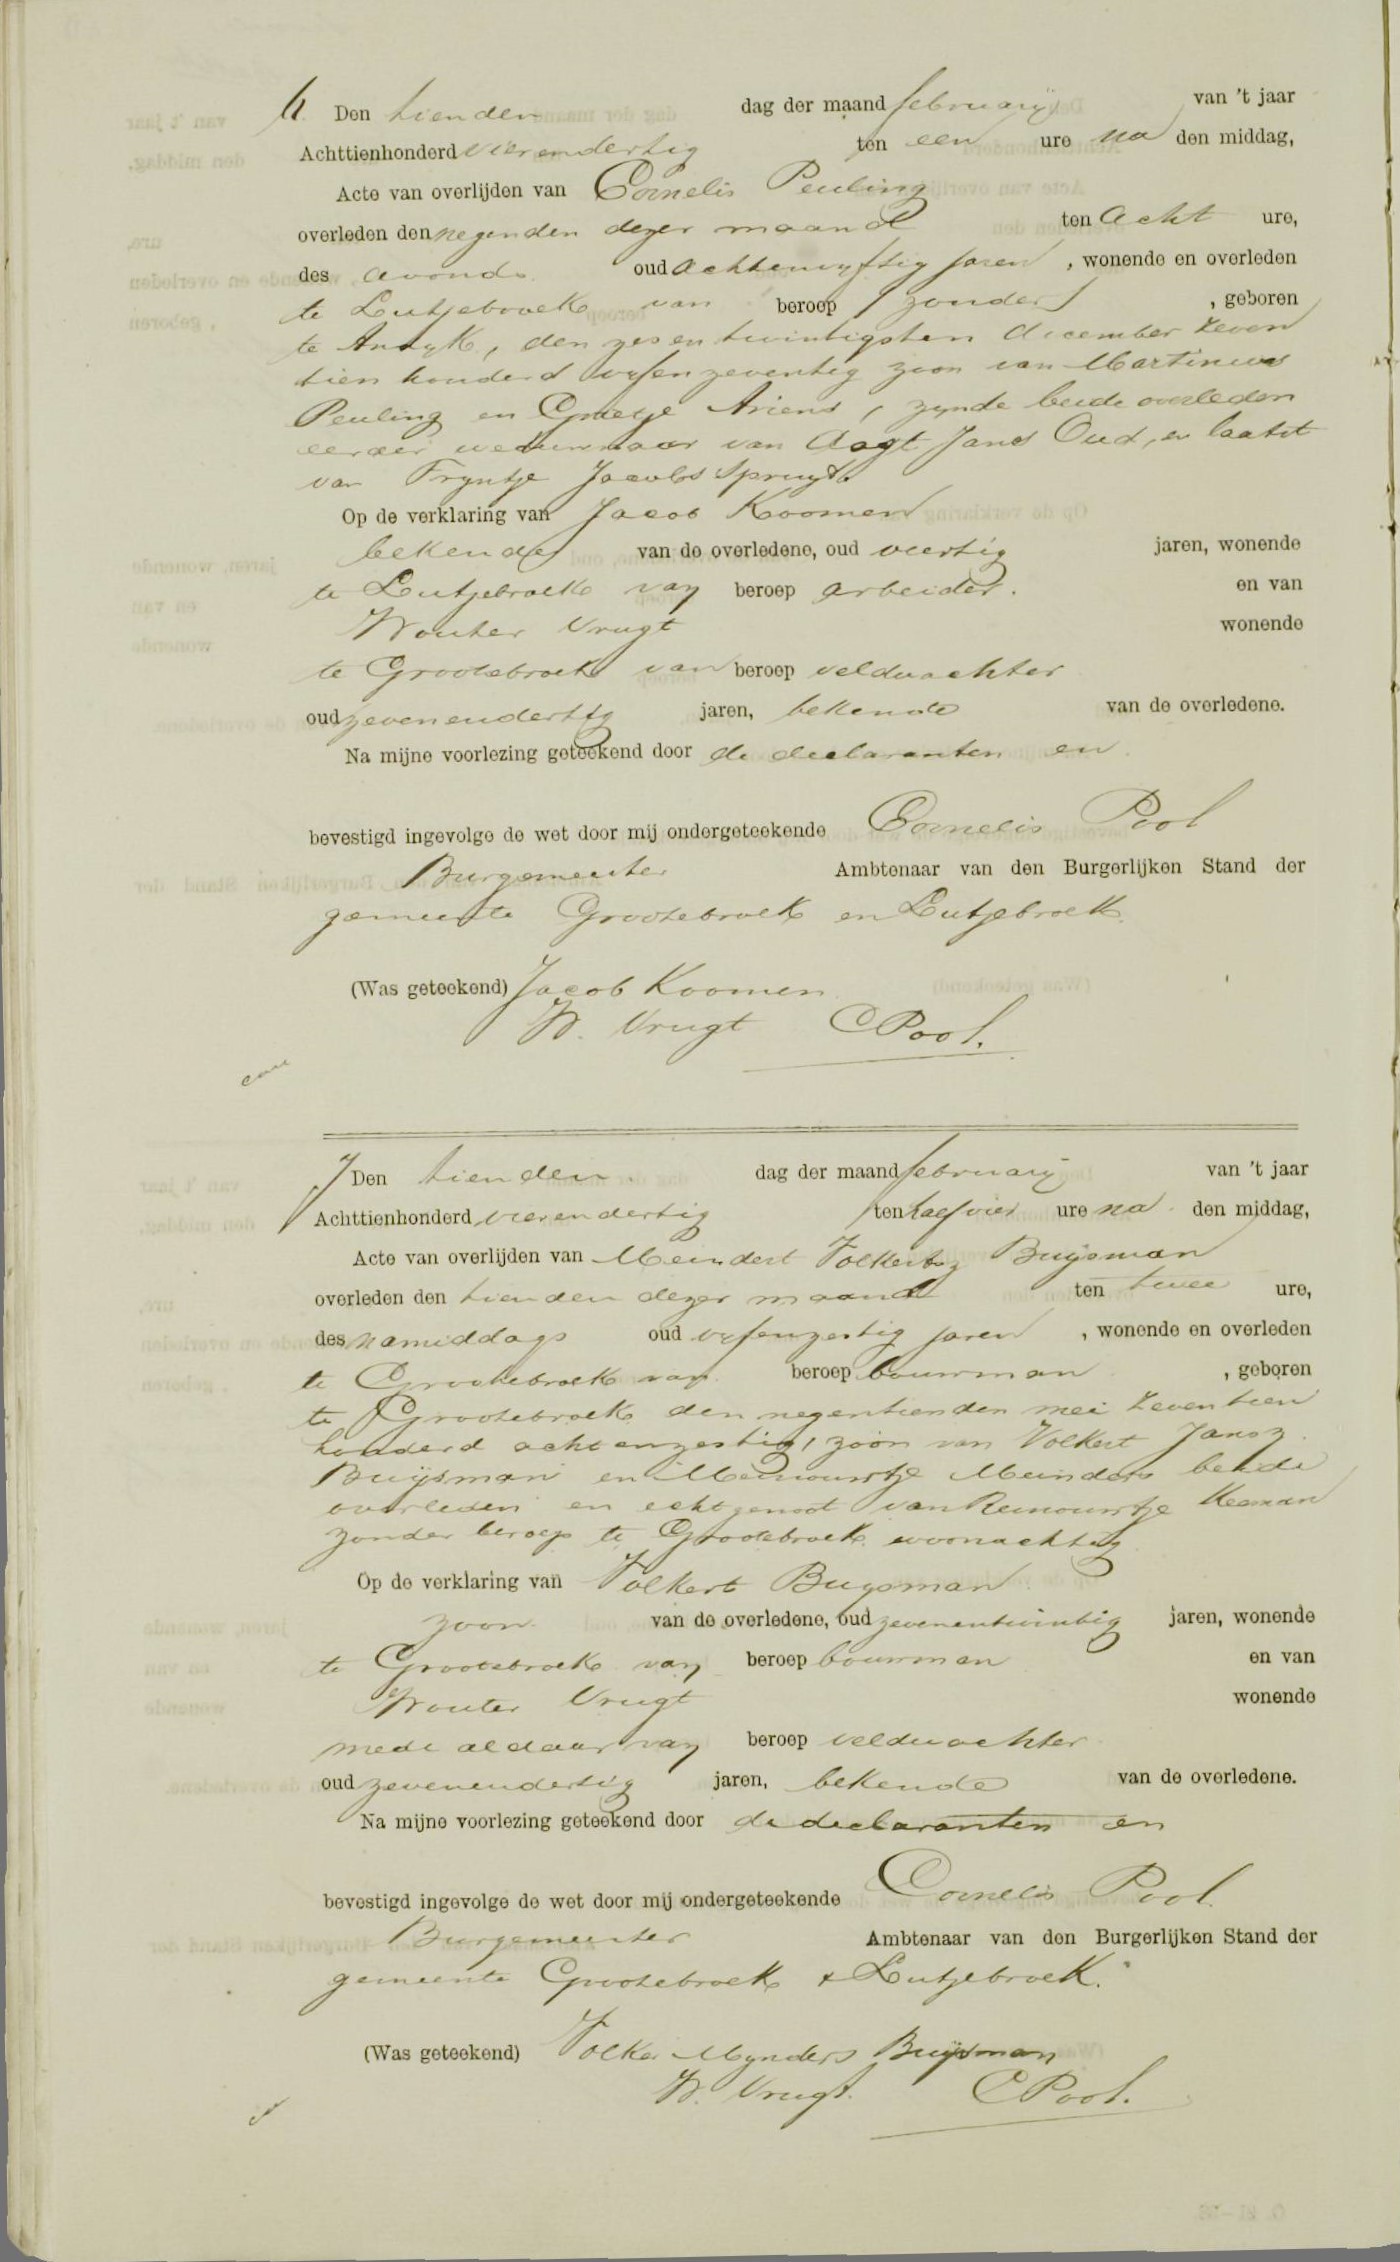 6. Den tienden dag der maand february van 't jaar
Achttienhonderd vierendertig ten een ure na den middag,
Acte van overlijden van Cornelis Peuling
overleden den negenden dezer maand ten acht ure,
des avonds oud achtenvyftig jaren, wonende en overleden
te Lutjebroek van beroep zonder, geboren
te Andyk, den zesentwintigsten december zeven
tien honderd vyfenzeventig zoon van Martinus
Peuling en Grietje Ariens, zynde beide overleden
eerder weduwnaar van Aagt Jans Oud, en laatst
van Tryntje Jacobs Spruyt
Op de verklaring van Jacob Koomen
bekende van de overledene, oud veertig jaren, wonende
te Lutjebroek van beroep arbeider. en van
Wouter Vrugt wonende
te Grootebroek van beroep veldwachter
oud zevenendertig jaren, bekende van de overledene.
Na mijne voorlezing geteekend door de declaranten en
bevestigd ingevolge de wet door mij ondergeteekende Cornelis Pool
Burgemeester Ambtenaar van den Burgerlijken Stand der
gemeente Grootebroek en Lutjebroek.
(Was geteekend) Jacob Koomen
W. Vrugt C Pool.
7 Den tienden dag der maand february van 't jaar
Achttienhonderd vierendertig ten half vier ure na den middag,
Acte van overlijden van Meindert Volkertsz Buijsman
overleden den tienden dezer maand ten twee ure,
des namiddags oud vyfenzestig jaren, wonende en overleden
te Grootebroek van beroep bouwman, geboren
te Grootebroek den negentienden mei zeventien
honderd achtenzestig, zoon van Volkert Jansz
Buijsman en Meinouwtje Meinders beide
overleden en echtgenoot van Reinouwtje Keeman
zonder beroep te Grootebroek woonachtig
Op de verklaring van Volkert Buysman
zoon van de overledene, oud zevenentwintig jaren, wonende
te Grootebroek van beroep bouwman en van
Wouter Vrugt wonende
mede aldaar van beroep veldwachter
oud zevenendertig jaren, bekende van de overledene.
Na mijne voorlezing geteekend door de declaranten en
bevestigd ingevolge de wet door mij ondergeteekende Cornelis Pool
Burgemeester Ambtenaar van den Burgerlijken Stand der
gemeente Grootebroek & Lutjebroek.
(Was geteekend) Volker Mynders Buijsman
W. Vrugt. C Pool.